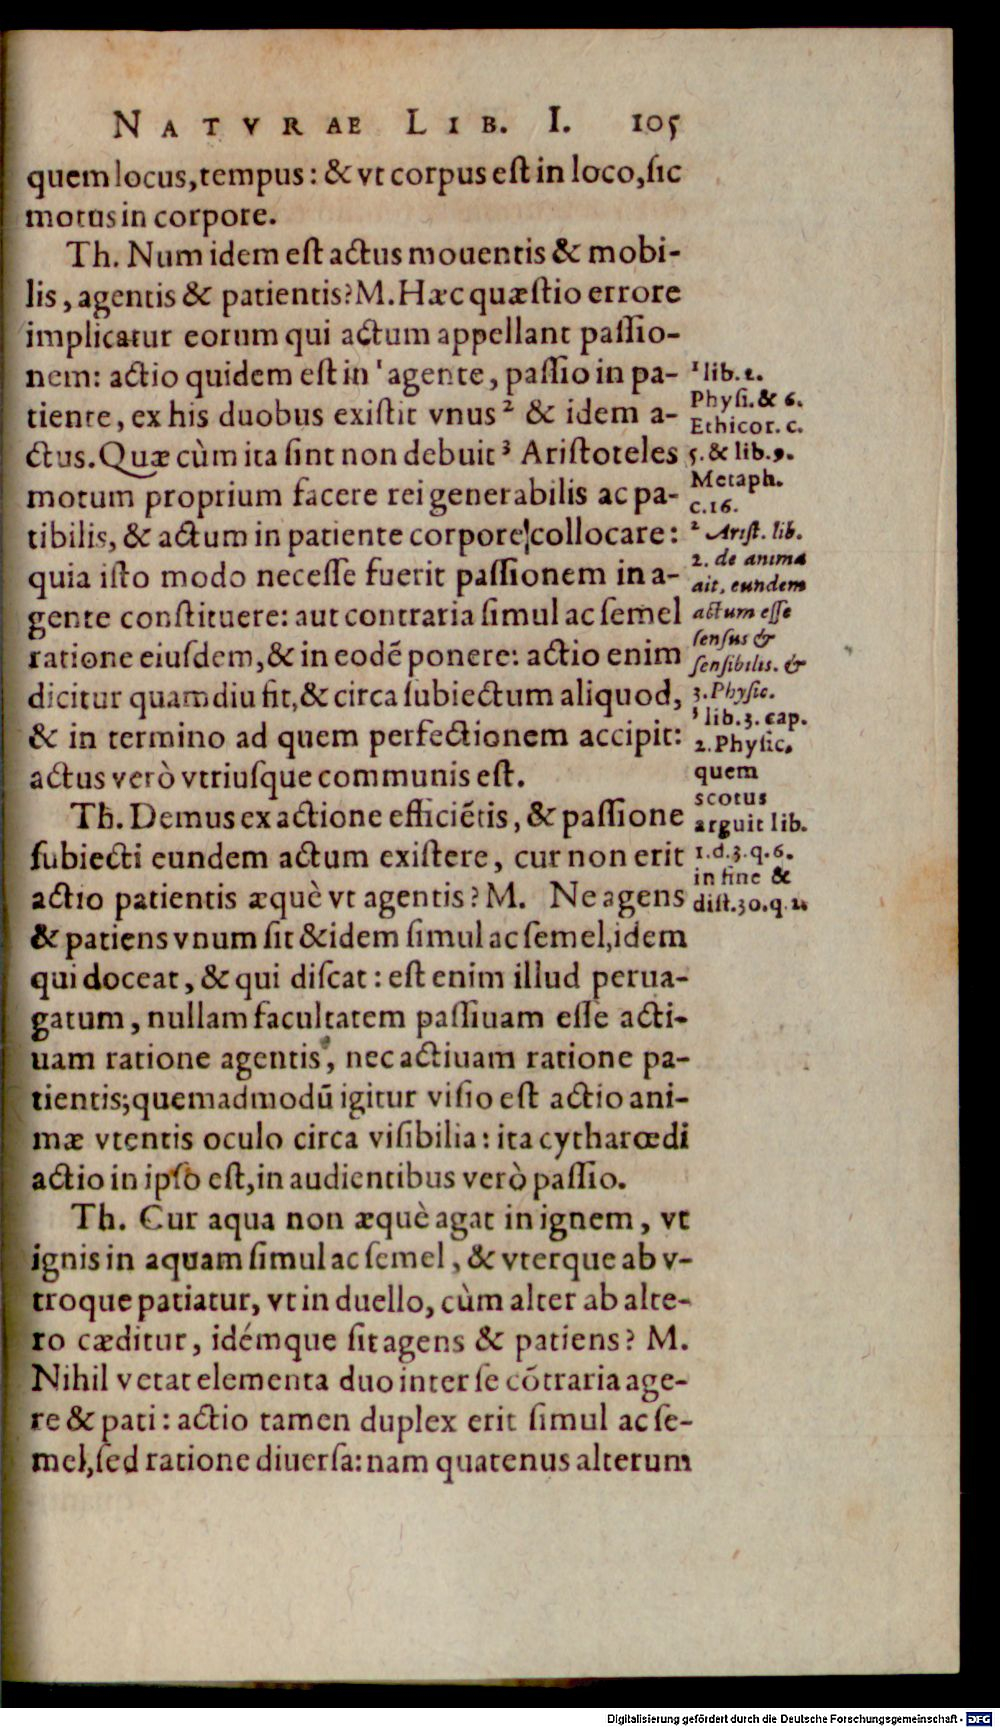 NATVRAE LIB. I. 105
quem locus, tempus: & vt corpus est in loco, sic
motus in corpore.
Th. Num idem est actus mouentis & mobi-
lis, agentis & patientis? M. Hæc quæstio errore
implicatur eorum qui actum appellant passio-
nem: actio quidem est in ¹ agente, passio in pa-
tiente, ex his duobus existit vnus ² & idem a-
ctus. Quæ cùm ita sint non debuit ³ Aristoteles
motum proprium facere rei generabilis ac pa-
tibilis, & actum in patiente corpore collocare:
quia isto modo necesse fuerit passionem in a-
gente constituere: aut contraria simul ac semel
ratione eiusdem, & in eodē ponere: actio enim
dicitur quamdiu fit, & circa subiectum aliquod,
& in termino ad quem perfectionem accipit:
actus verò vtriusque communis est.
Th. Demus ex actione efficiētis, & passione
subiecti eundem actum existere, cur non erit
actio patientis æquè vt agentis? M. Ne agens
& patiens vnum sit & idem simul ac semel, idem
qui doceat, & qui discat: est enim illud perua-
gatum, nullam facultatem passiuam esse acti-
uam ratione agentis, nec actiuam ratione pa-
tientis; quemadmodū igitur visio est actio ani-
mæ vtentis oculo circa visibilia: ita cytharœdi
actio in ipso est, in audientibus verò passio.
Th. Cur aqua non æquè agat in ignem, vt
ignis in aquam simul ac semel, & vterque ab v-
troque patiatur, vt in duello, cùm alter ab alte-
ro cæditur, idémque sit agens & patiens? M.
Nihil vetat elementa duo inter se cōtraria age-
re & pati: actio tamen duplex erit simul ac se-
mel, sed ratione diuersa: nam quatenus alterum
¹ lib. 2.
Physi. & 6.
Ethicor. c.
5. & lib. 9.
Metaph.
c. 16.
² Arist. lib.
2. de anima
ait, eundem
actum esse
sensus &
sensibilis. &
3. Physic.
³ lib. 3. cap.
2. Physic.
quem
scotus
arguit lib.
1. d. 3. q. 6.
in fine &
dist. 30. q. 2.
Digitalisierung gefördert durch die Deutsche Forschungsgemeinschaft - DFG